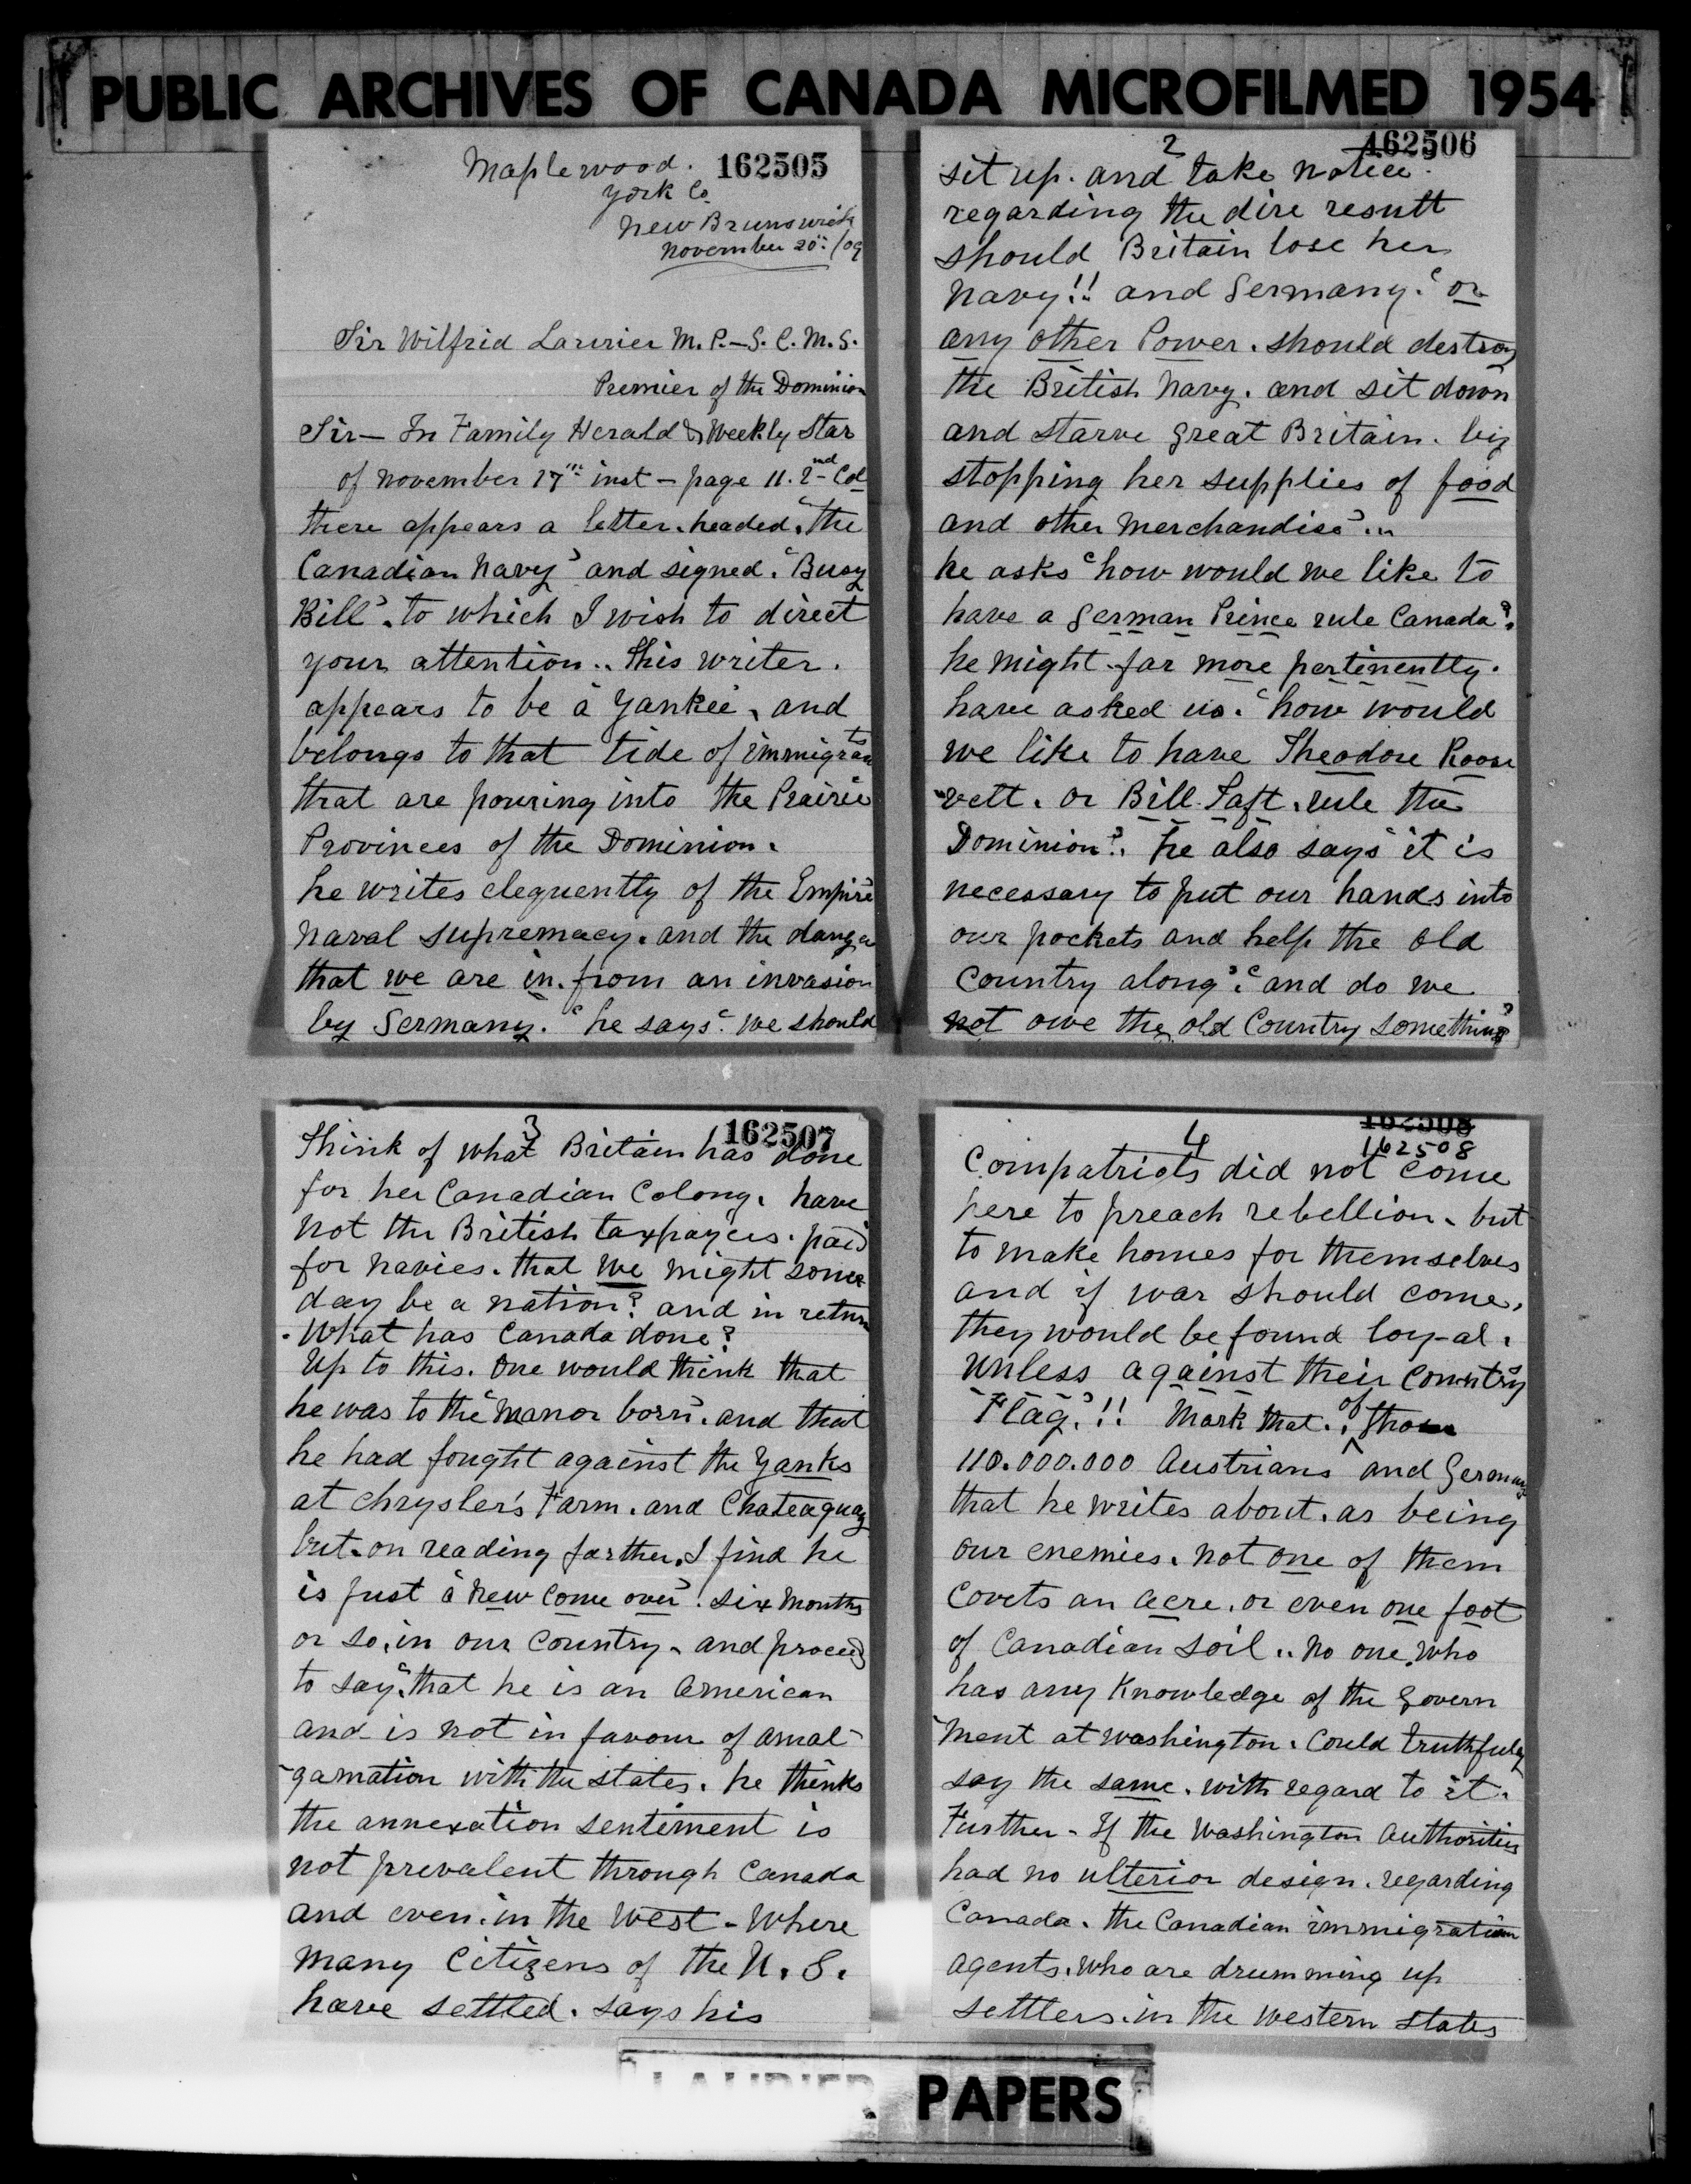 PUBLIC ARCHIVES OF CANADA MICROFILMED 1954
162505
Maplewood.
York Co
New Brunswick
November 20th /09
Sir Wilfrid Laurier M.P. – G.C.M.G.
Premier of the Dominion
Sir – In Family Herald & Weekly Star
of November 17th inst – page 11. 2nd Col
there appears a letter. headed. "the
Canadian Navy" and signed. "Busy
Bill". to which I wish to direct
your attention.. This writer.
appears to be a Yankee, and
belongs to that tide of immigrants
that are pouring into the Prairie
Provinces of the Dominion.
he writes eloquently of the Empire
Naval supremacy. and the danger
that we are in. from an invasion
by Germany. "he says". we should
162506
2
sit up. and take notice.
regarding the dire result
should Britain lose her
Navy!! and Germany. "or
any other Power. should destroy
the British Navy. and sit down
and starve Great Britain. by
stopping her supplies of food
and other merchandise"...
he asks "how would we like to
have a German Prince rule Canada"?
he might. far more pertinently.
have asked us. "how would
we like to have Theodore Roose
-velt. or Bill. Taft. rule the
Dominion"? he also says "it is
necessary to put our hands into
our pockets and help the old
Country along". "and do we
not owe the old Country something"?
162507
3
Think of what Britain has done
for her Canadian Colony. have
not the British taxpayers. paid
for navies. that we might some
day be a nation? and in return
. What has Canada done?
Up to this. one would think that
he was to the "manor born". and that
he had fought against the Yanks
at Chrysler's Farm. and Chateaguay
but. on reading farther. I find he
is just a "new come over". six months
or so. in our Country. and proceeds
to say. "that he is an American
and is not in favour of amal-
-gamation with the states. he thinks
the annexation sentiment is
not prevalent through Canada
and even. in the West – Where
many Citizens of the U.S.
have settled. says his
162508
162508
4
Compatriots did not come
here to preach rebellion. but
to make homes for themselves
and if war should come,
they would be found loy-al.
Unless against their Country
Flag."!! Mark that.. of those
110.000.000 Austrians and Germans
that he writes about. as being
our enemies. not one of them
Covets an acre. or even one foot
of Canadian soil.. No one. who
has any Knowledge of the Govern
-ment at Washington. Could truthfully
say the same. with regard to it.
Further – If the Washington Authorities
had no ulterior design. regarding
Canada. the Canadian immigration
agents. who are drumming up
settlers. in the western states
LAURIER PAPERS